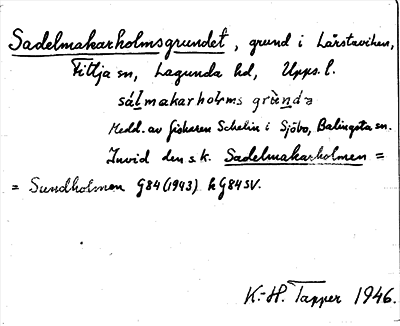 Sadelmakarholmsgrundet, grund i Lårstaviken,
Fittja sn, Lagunda hd, Upps. l.
sálmakarholms grùnda
Medd. av fiskaren Schelin i Sjöbo, Balingsta sn.
Invid den s.k. Sadelmakarholmen =
= Sundholmen G84(1943) h G84SV.
K.-H. Tapper 1946.